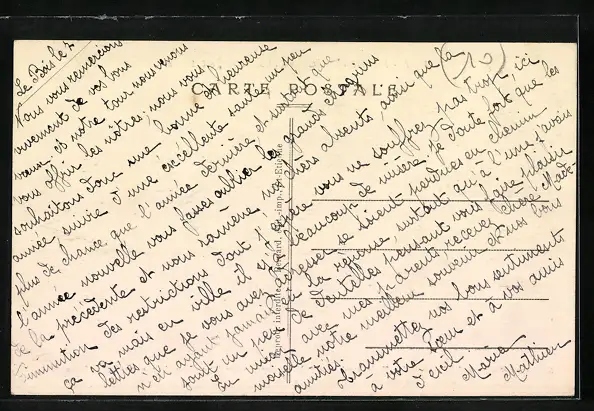 CARTE POSTALE
(10)
Le Bois le 7
Nous vous remercions
vivement de vos bons
vœux et notre tour nous venons
vous offrir les nôtres; nous vous
souhaitons donc une bonne et heureuse
année suivie d'une excellente santé un peu
plus de chance que l'année dernière et surtout que
l'année nouvelle vous fasse oublier les grands chagrins
de la précédente et nous ramène nos chers absents, ainsi que la
diminution des restrictions dont j'espère vous ne souffrez pas trop, ici
ça va mais en ville il y a beaucoup de misère, je doute fort que les
lettres que je vous avez se soient perdues en chemin
n'en ayant jamais la réponse, surtout qu'à l'une j'avais
joint un peu de dentelles pensant vous faire plaisir
En union avec mes parents recevez chère Made-
moiselle notre meilleur souvenir et nos bons
amitiés.
transmettez nos bons sentiments
à votre sœur et à vos amis
d'exil. Maria
Mathieu